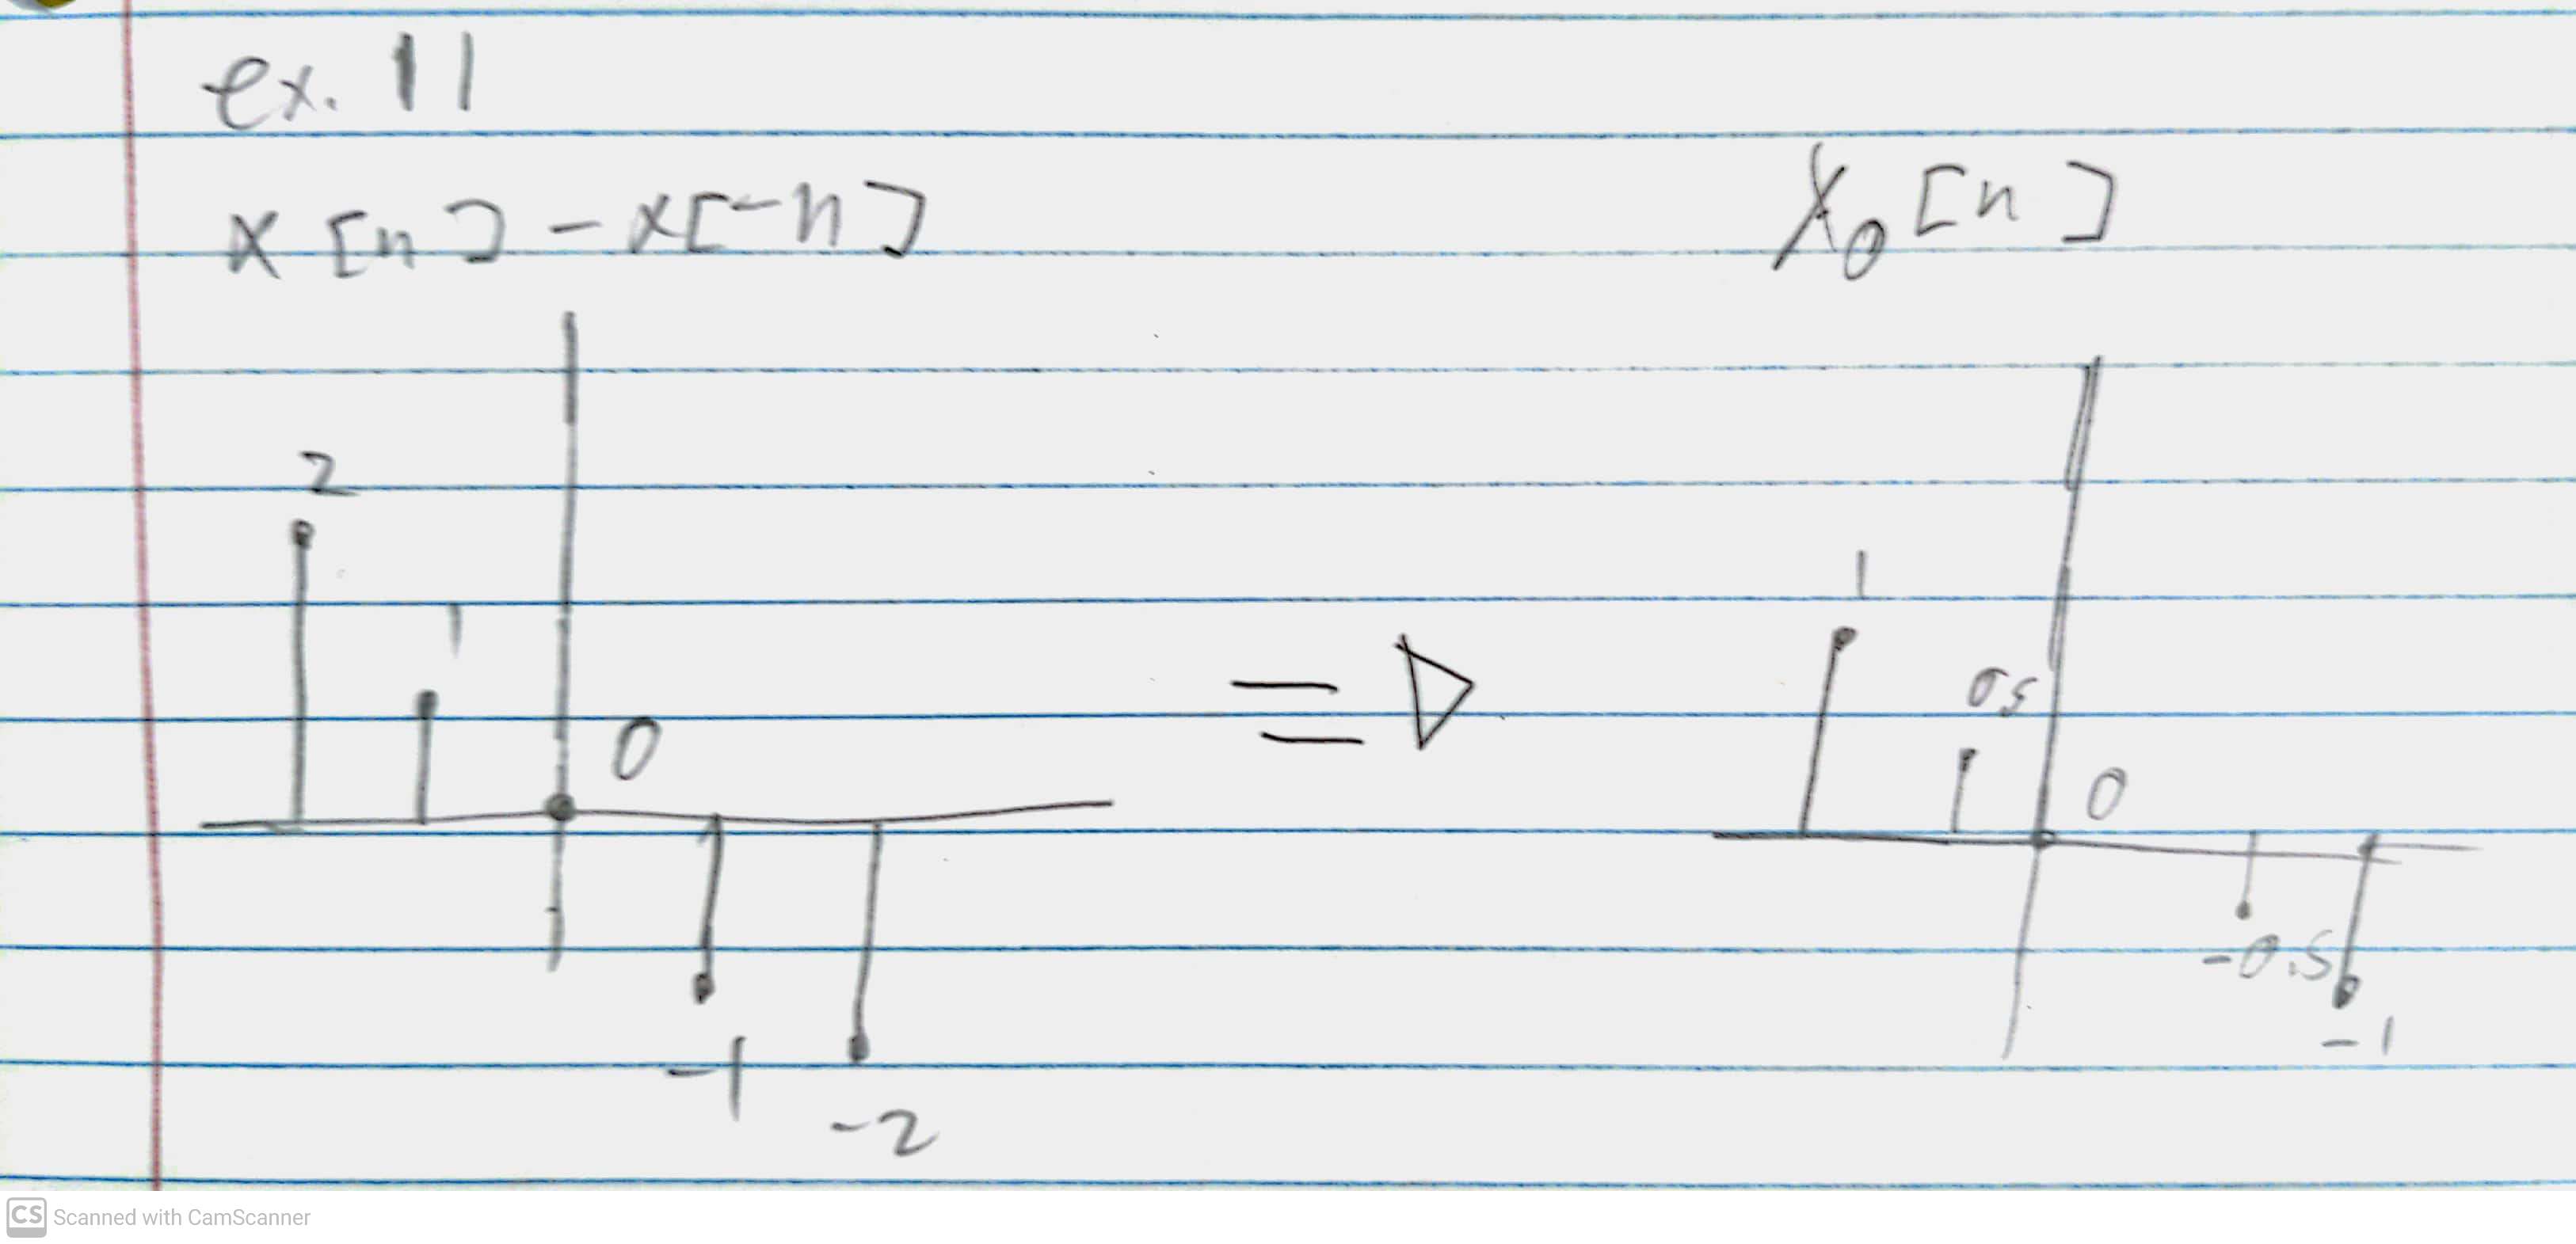 ex. 11
x[n] - x[-n]
X₀[n]
2
1
0
-1
-2
=▷
1
0.5
0
-0.5
-1
CS Scanned with CamScanner